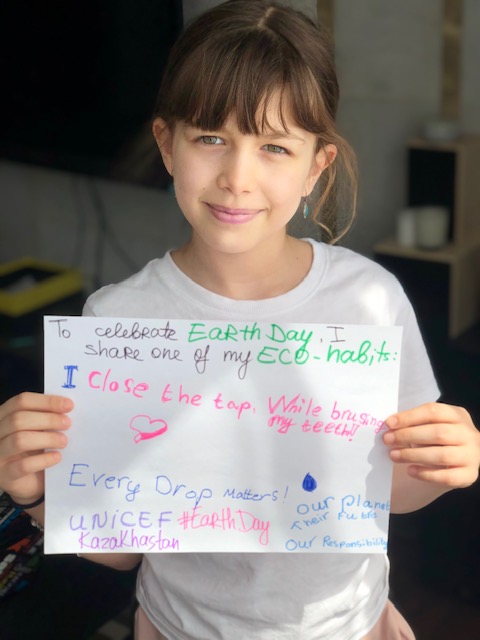 To celebrate EarthDay, I
share one of my ECO-habits:
I Close the tap, While brusing
my teeth!!
Every Drop Matters!
UNICEF #EarthDay
Kazakhstan
Our Planet
Their Future
Our Responsibility